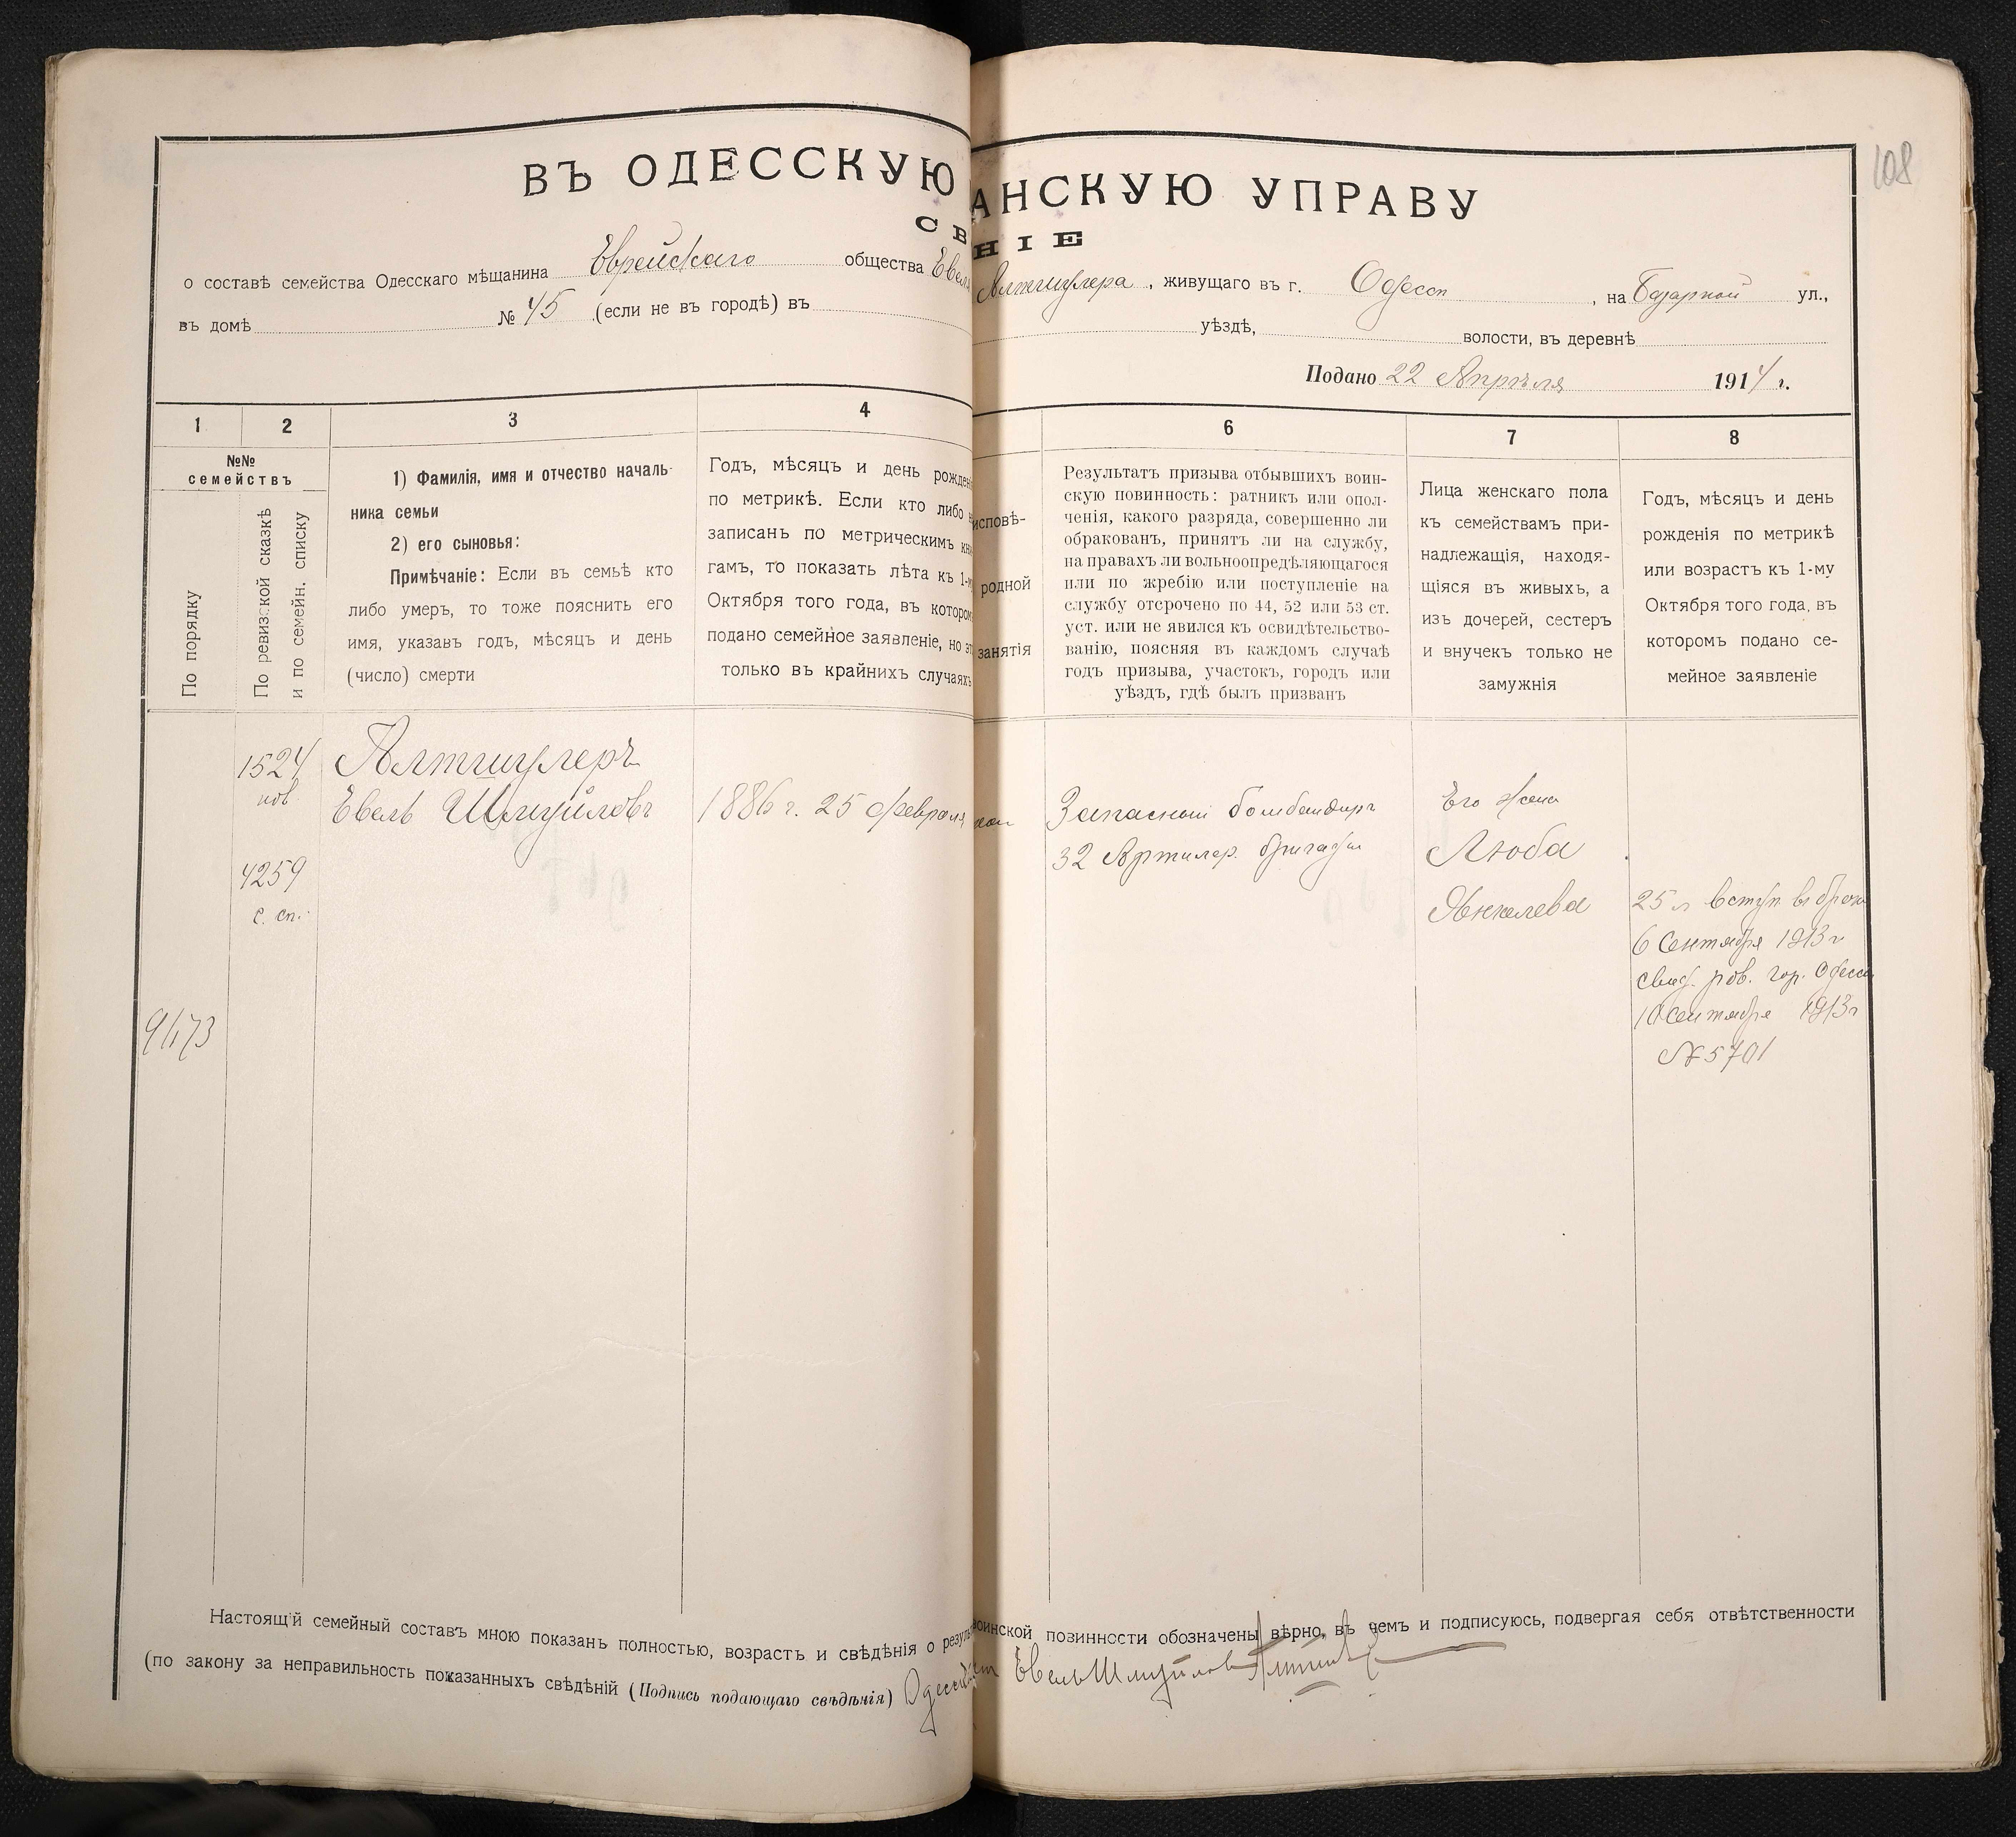 108
ВЪ ОДЕССКУЮ АНСКУЮ УПРАВУ
СВ НІЕ
о составѣ семейства Одесскаго мѣщанина Еврейскаго общества Евеля Алтшулера, живущаго въ г. Одессѣ, на Базарной ул.,
въ домѣ № 45 (если не въ городѣ) въ уѣздѣ, волости, въ деревнѣ
Подано 22 Апрѣля 1914 г.
1 2 3 4 6 7 8
№№
семействъ
По порядку
По ревизской сказкѣ
и по семейн. списку
1) Фамилія, имя и отчество началь-
ника семьи
2) его сыновья:
Примѣчаніе: Если въ семьѣ кто
либо умеръ, то тоже пояснить его
имя, указавъ годъ, мѣсяцъ и день
(число) смерти
Годъ, мѣсяцъ и день рожден
по метрикѣ. Если кто либо
записанъ по метрическимъ кни
гамъ, то показать лѣта къ 1-м
Октября того года, въ котором
подано семейное заявленіе, но эт
только въ крайнихъ случаяхъ
исповѣ-
родной
занятія
Результатъ призыва отбывшихъ воин-
скую повинность: ратникъ или опол-
ченія, какого разряда, совершенно ли
обракованъ, принятъ ли на службу,
на правахъ ли вольноопредѣляющагося
или по жребію или поступленіе на
службу отсрочено по 44, 52 или 53 ст.
уст. или не явился къ освидѣтельство-
ванію, поясняя въ каждомъ случаѣ
годъ призыва, участокъ, городъ или
уѣздъ, гдѣ былъ призванъ
Лица женскаго пола
къ семействамъ при-
надлежащія, находя-
щіяся въ живыхъ, а
изъ дочерей, сестеръ
и внучекъ только не
замужнія
Годъ, мѣсяцъ и день
рожденія по метрикѣ
или возрастъ къ 1-му
Октября того года, въ
которомъ подано се-
мейное заявленіе
1524
нов.
4259
с. сп.
9473
Алтшулеръ
Евель Шмуйловъ
1886 г. 25 февраля
Запасный бомбандиръ
32 Артилер. бригады
Его жена
Люба
Янкелева
25 л вступ въ бракъ
6 Сентября 1913 г
свид. рав. гор. Одессы
10 Сентября 1913 г
№ 5701
Настоящій семейный составъ мною показанъ полностью, возрастъ и свѣдѣнія о резуль воинской повинности обозначены вѣрно, въ чемъ и подписуюсь, подвергая себя отвѣтственности
(по закону за неправильность показанныхъ свѣдѣній (Подпись подающаго свѣдѣнія) Евель Шмуйловъ